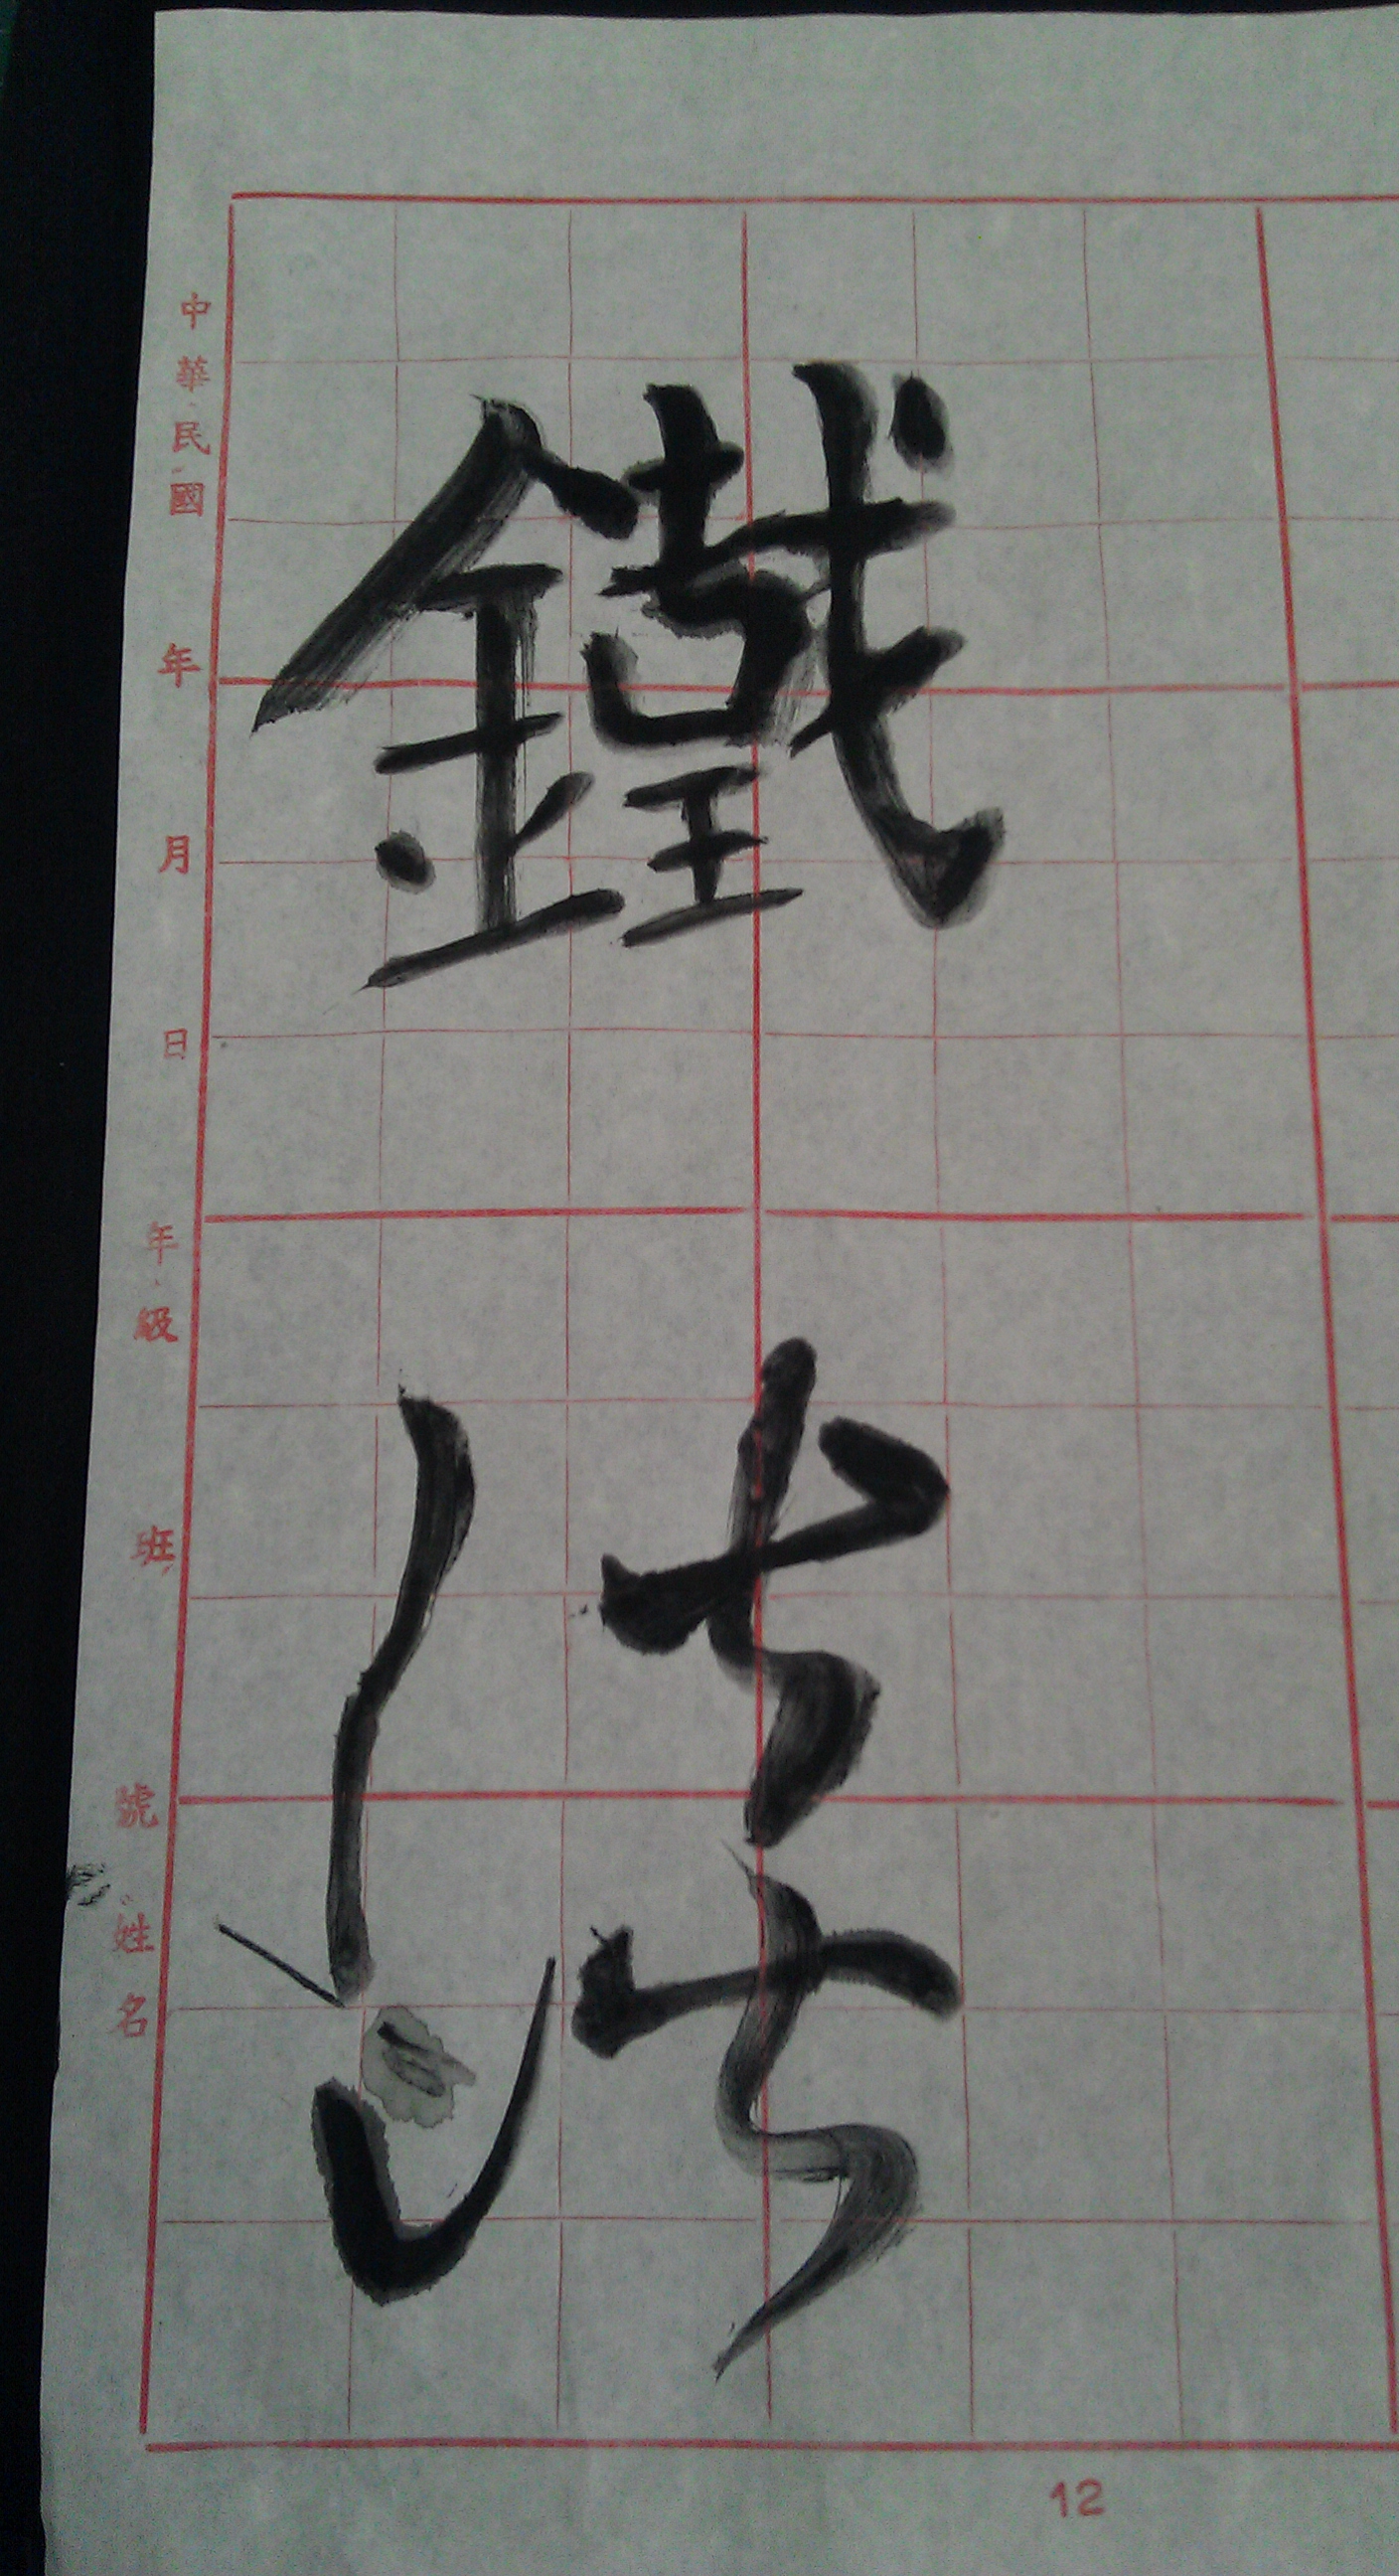 鐵
中華民國 年 月 日 年級 班 號 姓名
12